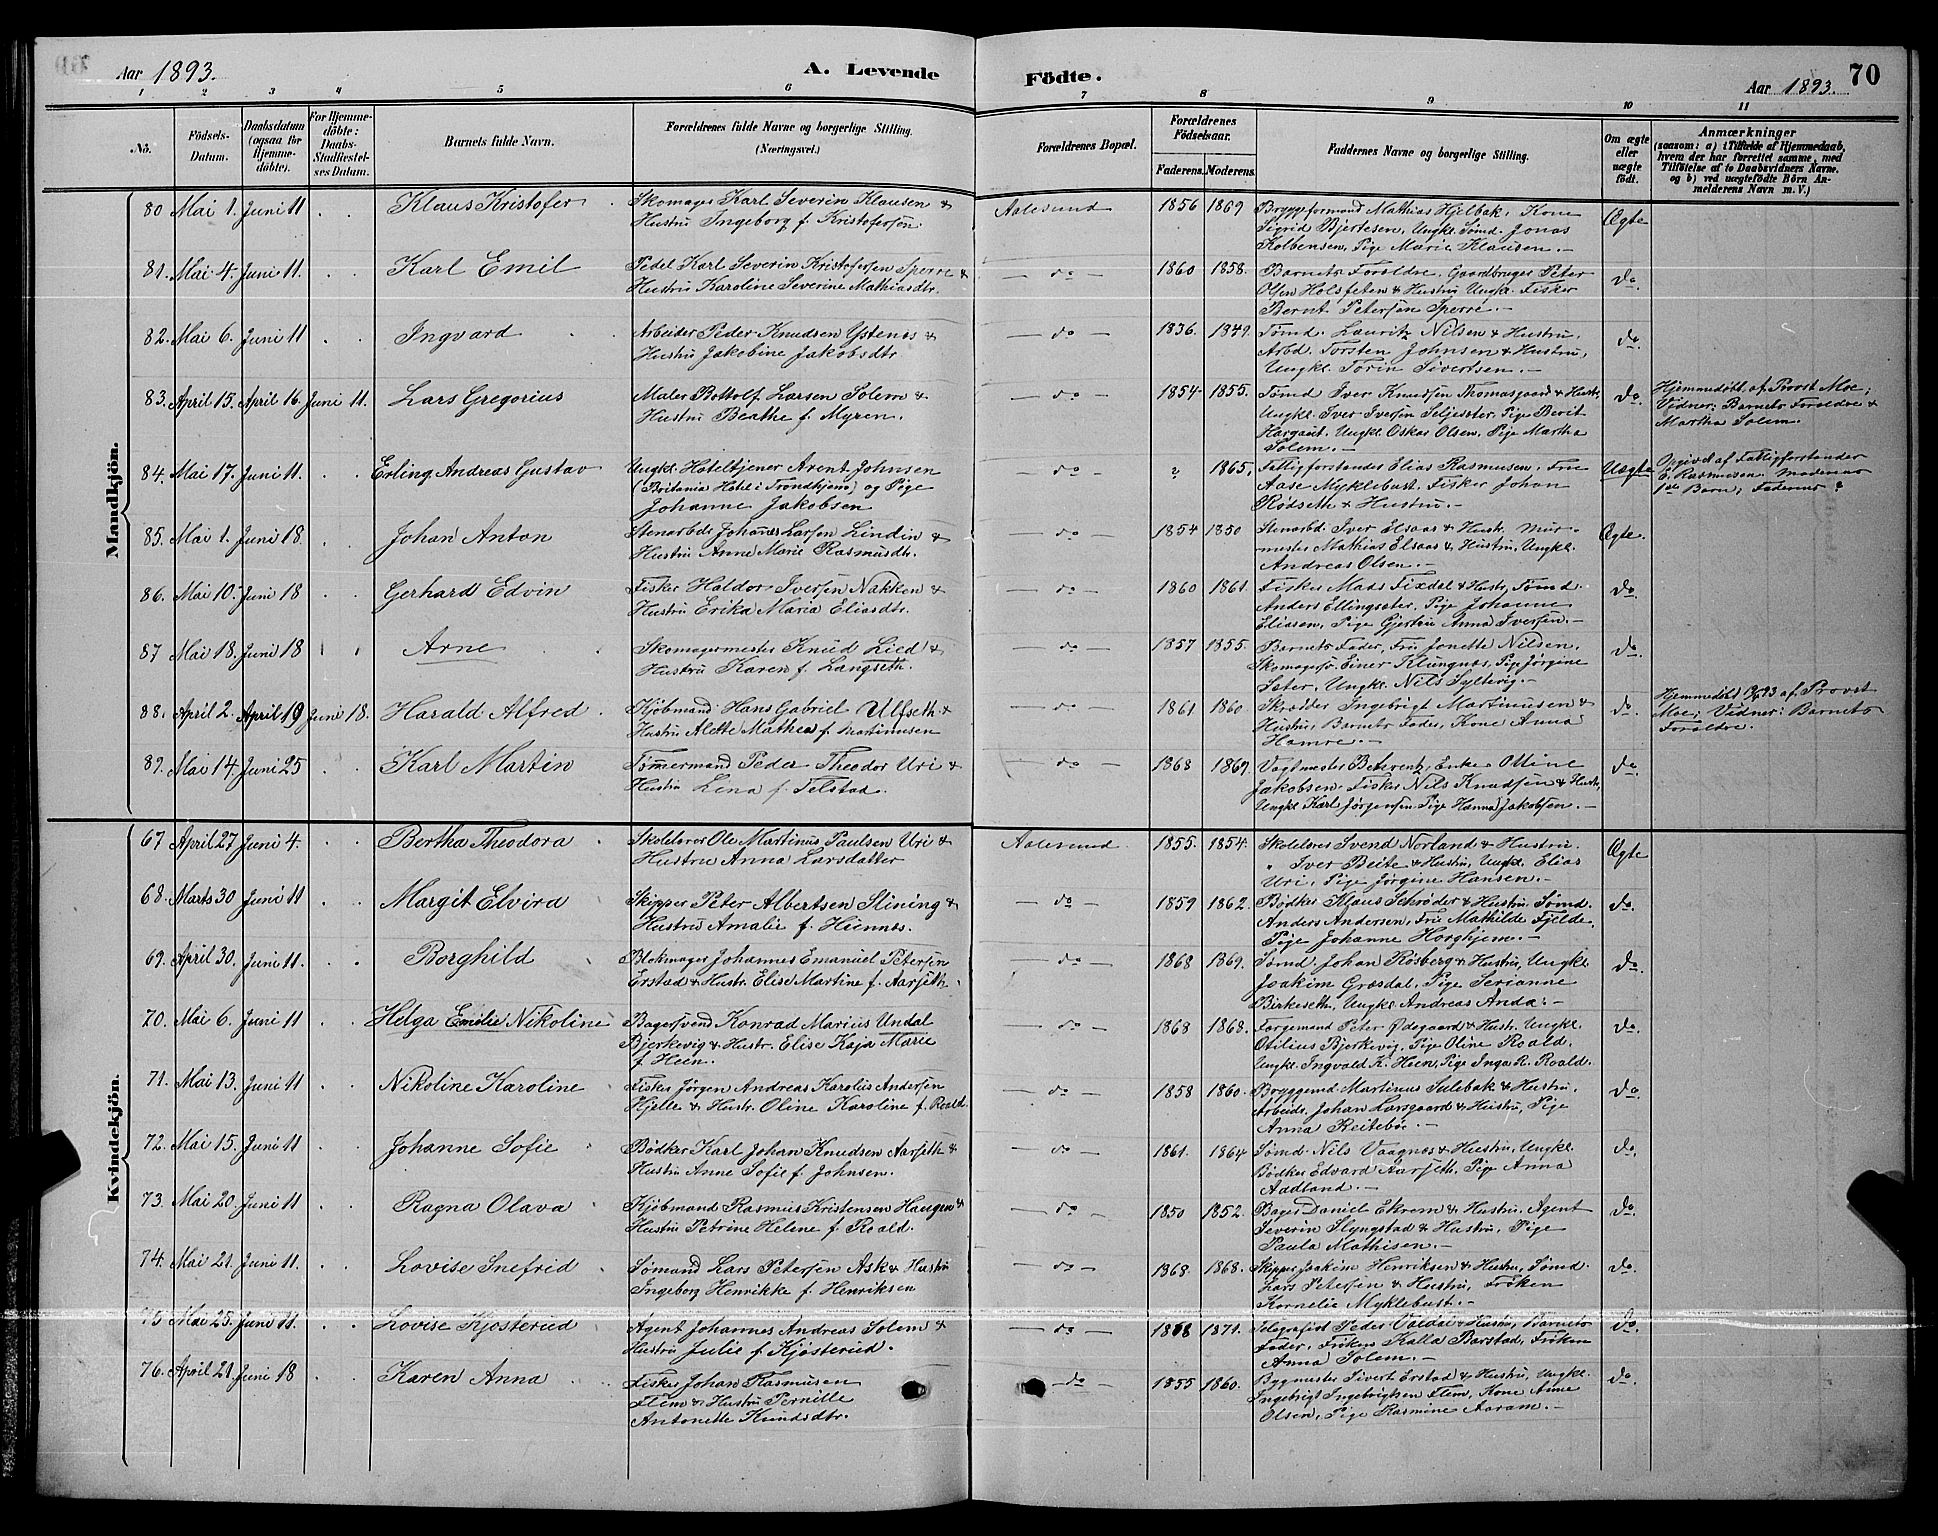 Aar 1893. A. Levende Födte. Aar 1893. 70
1 2 3 4 5 6 7 8 9 10 11
No. Födsels-Datum. Daabsdatum (ogsaa for Hjemmedöbte). For Hjemmedöbte: Daabs-Stadfæstelses Datum. Barnets fulde Navn. Forældrenes fulde Navne og borgerlige Stilling. (Næringsvei.) Forældrenes Bopæl. Forældrenes Födselsaar. Faderens. Moderens. Faddernes Navne og borgerlige Stilling. Om ægte eller uægte födt. Anmærkninger (saasom: a) i Tilfælde af Hjemmedaab, hvem der har forrettet samme, med Tilföielse af to Daabsvidners Navne. og b) ved uægtefödte Börn Anmelderens Navn m. V.)
Mandkjön.
80 Mai 1. Juni 11 Klaus Kristofer Skomager Karl Severin Klausen & Aalesund 1856 1869 Bryggeformand Mathias Hjelbak, Kone Ægte
Hustru Ingeborg f. Kristofersen. Sigrid Bjertesen, Ungkl. Sømd. Jonas
Kolbensen, Pige Marie Klausen.
81. Mai 4. Juni 11. Karl Emil Pedel Karl Severin Kristofersen Sperre & do 1860 1858. Barnets Foreldre, Gaardbruger Peter do
Hustru Karoline Severine Mathiasdtr. Olsen Holsfeten & Hustru Ungkl. Fisker
Bernt Petersen Sperre.
82. Mai 6. Juni 11 Ingvard Arbeider Peder Knudsen Ystenes & do 1836. 1849. Tømd. Lauritz Nilsen & Hustru, do.
Hustru Jakobine Jakobsdtr Arbd. Torsten Johnsen & Hustru,
Ungkl. Sivertsen.
83. April 15. April 16. Juni 11. Lars Gregorius Maler Bottolf Larsen Solem & do 1854 1855. Tømd Iver Knudsen Thomasgaard & Hustr, do. Hjemmedøbt af Provst Moe;
Hustru Beathe f. Myren. Ungkl. Iver Iversen Seljeseter, Pige Berit Vidner: Barnets Foreldre &
Hargaut. Ungkl. Oskar Olsen, Pige Martha Martha Solem.
Solem.
84. Mai 17. Juni 11. Erling Andreas Gustav Ungkl. Hoteltjener Arent Johnsen do ? 1865. Fattigforstander Elias Rasmusen. Frue Uægte Opgivet af Fattigforstander
(Britania Hotel i Trondhjem) og Pige Aase Myklebust. Fisker Johan E. Rasmusen. Moderens
Johanne Jakobsen Rødseth & Hustru. 1ste Barn; Faderens ?
85. Mai 1. Juni 18. Johan Anton Stenarbdr Johannes Larsen Lindin & do 1854 1850 Stenarbd. Iver Elsaas & Hustr. Mur- Ægte.
Hustru Anne Marie Rasmusdtr. mester Mathias Elsaas & Hustru, Ungkl.
Andreas Olsen.
86. Mai 10. Juni 18 Gerhard Edvin Fisker Haldor Iversen Nakken & do 1860 1861. Fisker Mads Fixdel & Hustr, Tømd. do.
Hustru Erika Maria Eliasdtr. Anders Ellingseter, Pige Johanne
Eliasen, Pige Gjertru Anna Iversen.
87 Mai 18. Juni 18 Arne Skomagermester Knud Lied & do 1857 1855. Barnets Fader, Fru Jonette Nilsen, do.
Hustru Karen f. Langseth. Skomagersv. Einer Klungnes, Pige Jørgine
Seter, Ungkl. Nils Syltevig.
88. April 2. April 19 Juni 18. Harald Alfred Kjøbmand Hans Gabriel Ulfseth & do 1861 1860 Skræder Ingebrigt Martinusen & do. Hjemmedøbt 93 af Provst
Hustru Alette Mathea f. Martinusen Hustru, Barnets Fader, Kone Anna Moe; Vidner: Barnets
Hamre. Foreldre.
89. Mai 14. Juni 25 Karl Martin Tømmermand Peder Theodor Uri & do 1868 1869. Vagtmester Beverentz, Enke Olline do
Hustru Lena f. Felstad. Jakobsen. Fisker Nils Knudsen & Hustr,
Ungkl Karl Jørgensen Pige Hanna Jakobsen.
Kvindekjön.
67 April 27 Juni 4. Bertha Theodora Skolelærer Ole Martinus Paulsen Uri & Aalesund 1855. 1854. Skolelærer Svend Norland & Hustru. Ægte
Hustru Anna Larsdatter " Iver Beite & Hustru, Ungkl. Elias
Uri, Pige Jørgine Hansen.
68. Marts 30 Juni 11 Margit Elvira Skipper Peter Albertsen Slining & do 1859 1862. Bødker Klaus Schrøder & Hustru. Sømd. do.
Hustru Amalie f. Hiennes. Anders Andersen, Fru Mathilde Fjelde,
Pige Johanne Horghjem.
69. April 30. Juni 11. Borghild Blokmager Johannes Emanuel Petersen do 1868 1869. Sømd. Johan Rosberg & Hustru, Ungkl. do.
Erstad & Hustr. Elise Martine f. Aarseth. Joakim Græsdal, Pige Serianne
Birkeseth, Ungkl. Andreas Anda.
70. Mai 6. Juni 11 Helga Emilie Nikoline Bagersvend Konrad Marius Undal do 1868 1868. Fargemand Peter Ødegaard & Hustr. Ungkl. do.
Bjerkevig & Hustr. Elise Kaja Marie Otilius Bjerkevig, Pige Oline Roald.
f. Heen. Ungkl. Ingvald K. Heen, Pige Inga R. Roald.
71. Mai 13. Juni 11 Nikoline Karoline Fisker Jørgen Andreas Karolius Andersen do 1858 1860. Bryggemd Martinus Sulebak & Hustru. do.
Hjelle & Hustr. Oline Karoline f. Roald. Arbeidr. Johan Larsgaard & Hustru, Pige
Anna Reitebøe.
72. Mai 15. Juni 11 Johanne Sofie Bødker Karl Johan Knudsen Aarseth & do 1861. 1864 Sømd. Nils Vaagnes & Hustru, Ungkl. do.
Hustru Anne Sofie f. Johnsen. Bødker Edvard Aarseth, Pige Anna
Aadland.
73. Mai 20. Juni 11 Ragna Olava Kjøbmand Rasmus Kristensen Haugen & do 1850 1852. Bager Daniel Ekrem & Hustru, Agent do.
Hustru Petrine Helene f. Roald. Severin Slyngstad & Hustru, Pige
Paula Mathisen.
74. Mai 21. Juni 11. Lovise Snefrid Sømand Lars Petersen Ask & Hustru do 1868. 1868. Skipper Joakim Henriksen & Hustru, Sømd. do.
Ingeborg Henrikke f. Henriksen Lars Petersen & Hustru, Frøken
Kornelia Myklebust.
75 Mai 25. Juni 11. Lovise Kjøsterud Agent Johannes Andreas Solem & do 1868 1871. Telegrafist Peder Valdal & Hustru, Barnets do.
Hustru Julie f. Kjøsterud. Fader, Frøken Kalla Barstad, Frøken
Anna Solem.
76. April 21. Juni 18 Karen Anna Fisker Johan Rasmusen do 1855 1860. Bygmester Sivert Erstad & Hustru, Ungkl. do.
Flem & Hustru Pernille Ingebrigt Ingebrigtsen Flem, Kone Anne
Antonette Knudsdtr. Olsen, Pige Rasmine Aaram.